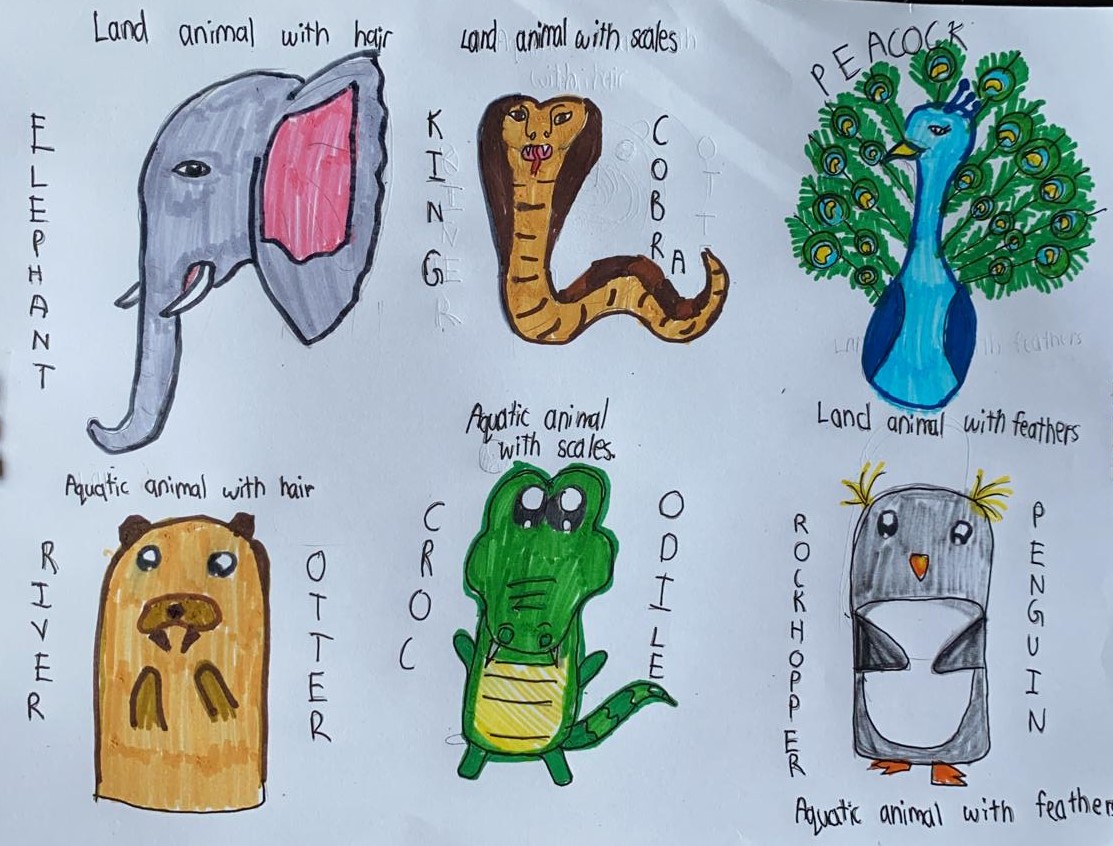 Land animal with hair
ELEPHANT
Land animal with scales
with hair
KING
COBRA
PEACOCK
Land animal with feathers
Aquatic animal with hair
RIVER
OTTER
Aquatic animal
with scales.
CROC
ODILE
ROCKHOPPER
PENGUIN
Aquatic animal with feathers